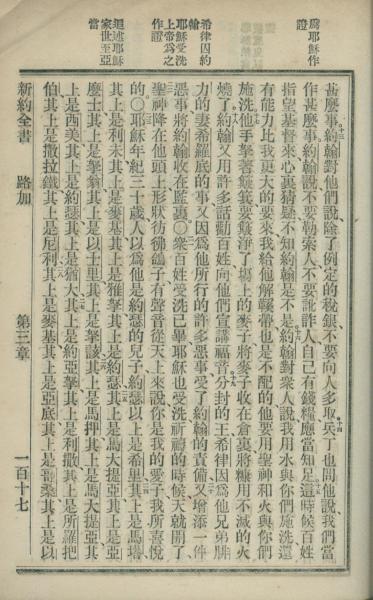 爲耶穌作
證
希律囚約
翰
耶穌受洗
上帝爲之
作證
追述耶穌
家世至亞
當
甚麼事約翰對他們說除了例定的稅銀不要向人多取兵丁也問他說我們當
作甚麼事約翰說不要勒索人不要訛詐人自己有錢糧應當知足這時候百姓
指望基督來心裏猜疑不知約翰是不是約翰對衆人說我用水與你們施洗還
有能力比我更大的要來我給他解鞋帶也是不配的他要用聖神和火與你們
施洗他手拏著簸箕要簸淨了場上的麥子將麥子收在倉裏將糠用不滅的火
燒了約翰又用許多話勸百姓向他們宣講福音分封的王希律因爲他兄弟腓
力的妻希羅底的事又因爲他所行的許多惡事受了約翰的責備又增添一件
惡事將約翰收在監裏〇衆百姓受洗已畢耶穌也受洗祈禱的時候天就開了
聖神降在他頭上形狀彷彿鴿子有聲音從天上來說你是我的愛子我所喜悅
的〇耶穌年紀三十歲人以爲他是約瑟的兒子約瑟以上是希里其上是馬塔
其上是利未其上是麥基其上是雅拏其上是約瑟其上是馬大提亞其上是亞
麼士其上是拏翁其上是以士里其上是拏該其上是馬押其上是馬大提亞其
上是西美其上是約瑟其上是猶大其上是約亞拏其上是利撒其上是所羅把
伯其上是撒拉鐵其上是尼利其上是麥基其上是亞底其上是哥桑其上是以
新約全書 路加 第三章 一百十七